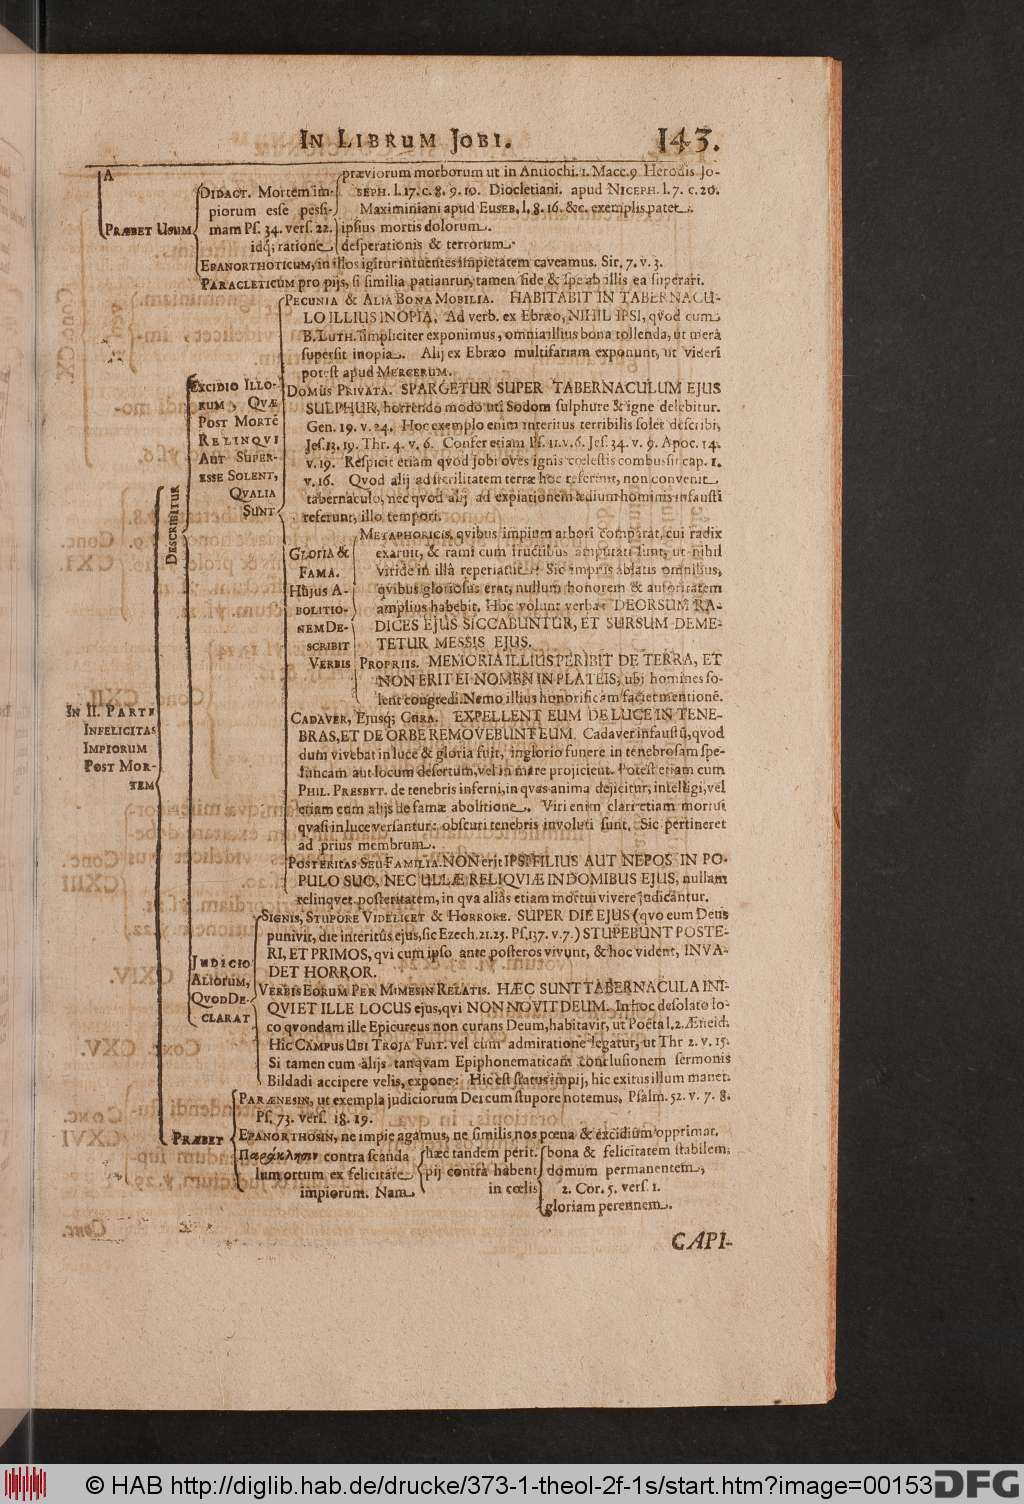 IN LIBRUM JOBI. 143.
A
PRÆBET USUM
DIDACT. Mortem im-
piorum esse pessi-
mam Ps. 34. vers. 22.
idq; ratione
præviorum morborum ut in Antiochi. 1. Macc. 9. Herodis Jo-
SEPH. l. 17. c. 8. 9. 10. Diocletiani. apud NICEPH. l. 7. c. 20.
Maximiniani apud EUSEB. l. 8. 16. &c. exemplis patet.
ipsius mortis dolorum.
desperationis & terrorum.
EPANORTHOTICUM, in illos igitur intuentes impietatem caveamus. Sir. 7. v. 3.
PARACLETICUM pro pijs, si similia patiantur, tamen fide & spe ab illis ea superari.
IN II. PARTE
INFELICITAS
IMPIORUM
POST MOR-
TEM
DESCRIBITUR
EXCIDIO ILLO-
RUM, QVÆ
POST MORTĒ
RELINQVI
AUT SUPER-
ESSE SOLENT,
QVALIA
SUNT
PECUNIA & ALIA BONA MOBILIA. HABITABIT IN TABERNACU-
LO ILLIUS INOPIA, Ad verb. ex Ebræo, NIHIL IPSI, qvod cum
B. LUTH. simpliciter exponimus, omnia illius bona tollenda, ut mera
supersit inopia. Alij ex Ebræo multifariam exponunt, ut videri
potest apud MERCERUM.
DOMUS PRIVATA. SPARGETUR SUPER TABERNACULUM EJUS
SULPHUR, horrendo modo uti Sodom sulphure & igne delebitur.
Gen. 19. v. 24. Hoc exemplo enim interitus terribilis solet describi,
Jes. 13. 19. Thr. 4. v. 6. Confer etiam Ps. 11. v. 6. Jes. 34. v. 9. Apoc. 14.
v. 19. Respicit etiam qvod Jobi oves ignis cœlestis combussit cap. 1.
v. 16. Qvod alij ad sterilitatem terræ hoc referunt, non convenit
tabernaculo, nec qvod alij ad expiationem ædium hominis infausti
referunt, illo tempori.
GLORIA &
FAMA.
Hujus A-
BOLITIO-
NEM DE-
SCRIBIT
VERBIS
METAPHORICIS, qvibus impium arbori comparat, cui radix
exaruit, & rami cum fructibus amputati sunt, ut nihil
viride in illâ reperiatur. Sic impiis ablatis omnibus,
qvibus gloriosus erat, nullum honorem & autoritatem
amplius habebit. Hoc volunt verba: DEORSUM RA-
DICES EJUS SICCABUNTUR, ET SURSUM DEME-
TETUR MESSIS EJUS.
PROPRIIS. MEMORIA ILLIUS PERIBIT DE TERRA, ET
NON ERIT EI NOMEN IN PLATEIS, ubi homines so-
lent congredi. Nemo illius honorificam faciet mentionē.
CADAVER, Ejusq; CURA. EXPELLENT EUM DE LUCE IN TENE-
BRAS, ET DE ORBE REMOVEBUNT EUM. Cadaver infaustū, qvod
dum vivebat in luce & gloria fuit, inglorio funere in tenebrosam spe-
luncam aut locum desertum, vel in mare projicient. Potest etiam cum
PHIL. PRESBYT. de tenebris inferni, in qvas anima dejicitur, intelligi, vel
etiam cum alijs de famæ abolitione. Viri enim clari etiam mortui
qvasi in luce versantur: obscuri tenebris involuti sunt. Sic pertineret
ad prius membrum.
POSTERITAS SEU FAMILIA. NON erit IPSI FILIUS AUT NEPOS IN PO-
PULO SUO, NEC ULLÆ RELIQVIÆ IN DOMIBUS EJUS, nullam
relinqvet posteritatem, in qva aliàs etiam mortui vivere judicantur.
JUDICIO
ALIORUM,
QVOD DE-
CLARAT
SIGNIS, STUPORE VIDELICET & HORRORE. SUPER DIE EJUS (qvo eum Deus
punivit, die interitûs ejus, sic Ezech. 21. 25. Ps. 137. v. 7.) STUPEBUNT POSTE-
RI, ET PRIMOS, qvi cum ipso ante posteros vivunt, & hoc vident, INVA-
DET HORROR.
VERBIS EORUM PER MIMESIN RELATIS. HÆC SUNT TABERNACULA INI-
QVI ET ILLE LOCUS ejus, qvi NON NOVIT DEUM. In hoc desolato lo-
co qvondam ille Epicureus non curans Deum, habitavit, ut Poëta l. 2. Æneid.
Hîc CAMPUS UBI TROJA FUIT. vel cum admiratione legatur, ut Thr 2. v. 15.
Si tamen cum alijs tanqvam Epiphonematicam conclusionem sermonis
Bildadi accipere velis, expone: Hic est status impij, hic exitus illum manet.
PRÆBET
PARÆNESIN, ut exempla judiciorum Dei cum stupore notemus, Psalm. 52. v. 7. 8.
Ps. 73. vers. 18. 19.
EPANORTHOSIN, ne impie agamus, ne similis nos pœna & excidium opprimat.
Παράκλησιν contra scanda
lum ortum ex felicitate
impiorum. Nam
hæc tandem perit.
pij contra habent
in cœlis
bona & felicitatem stabilem,
domum permanentem,
2. Cor. 5. vers. 1.
gloriam perennem.
CAPI-
© HAB http://diglib.hab.de/drucke/373-1-theol-2f-1s/start.htm?image=00153
DFG